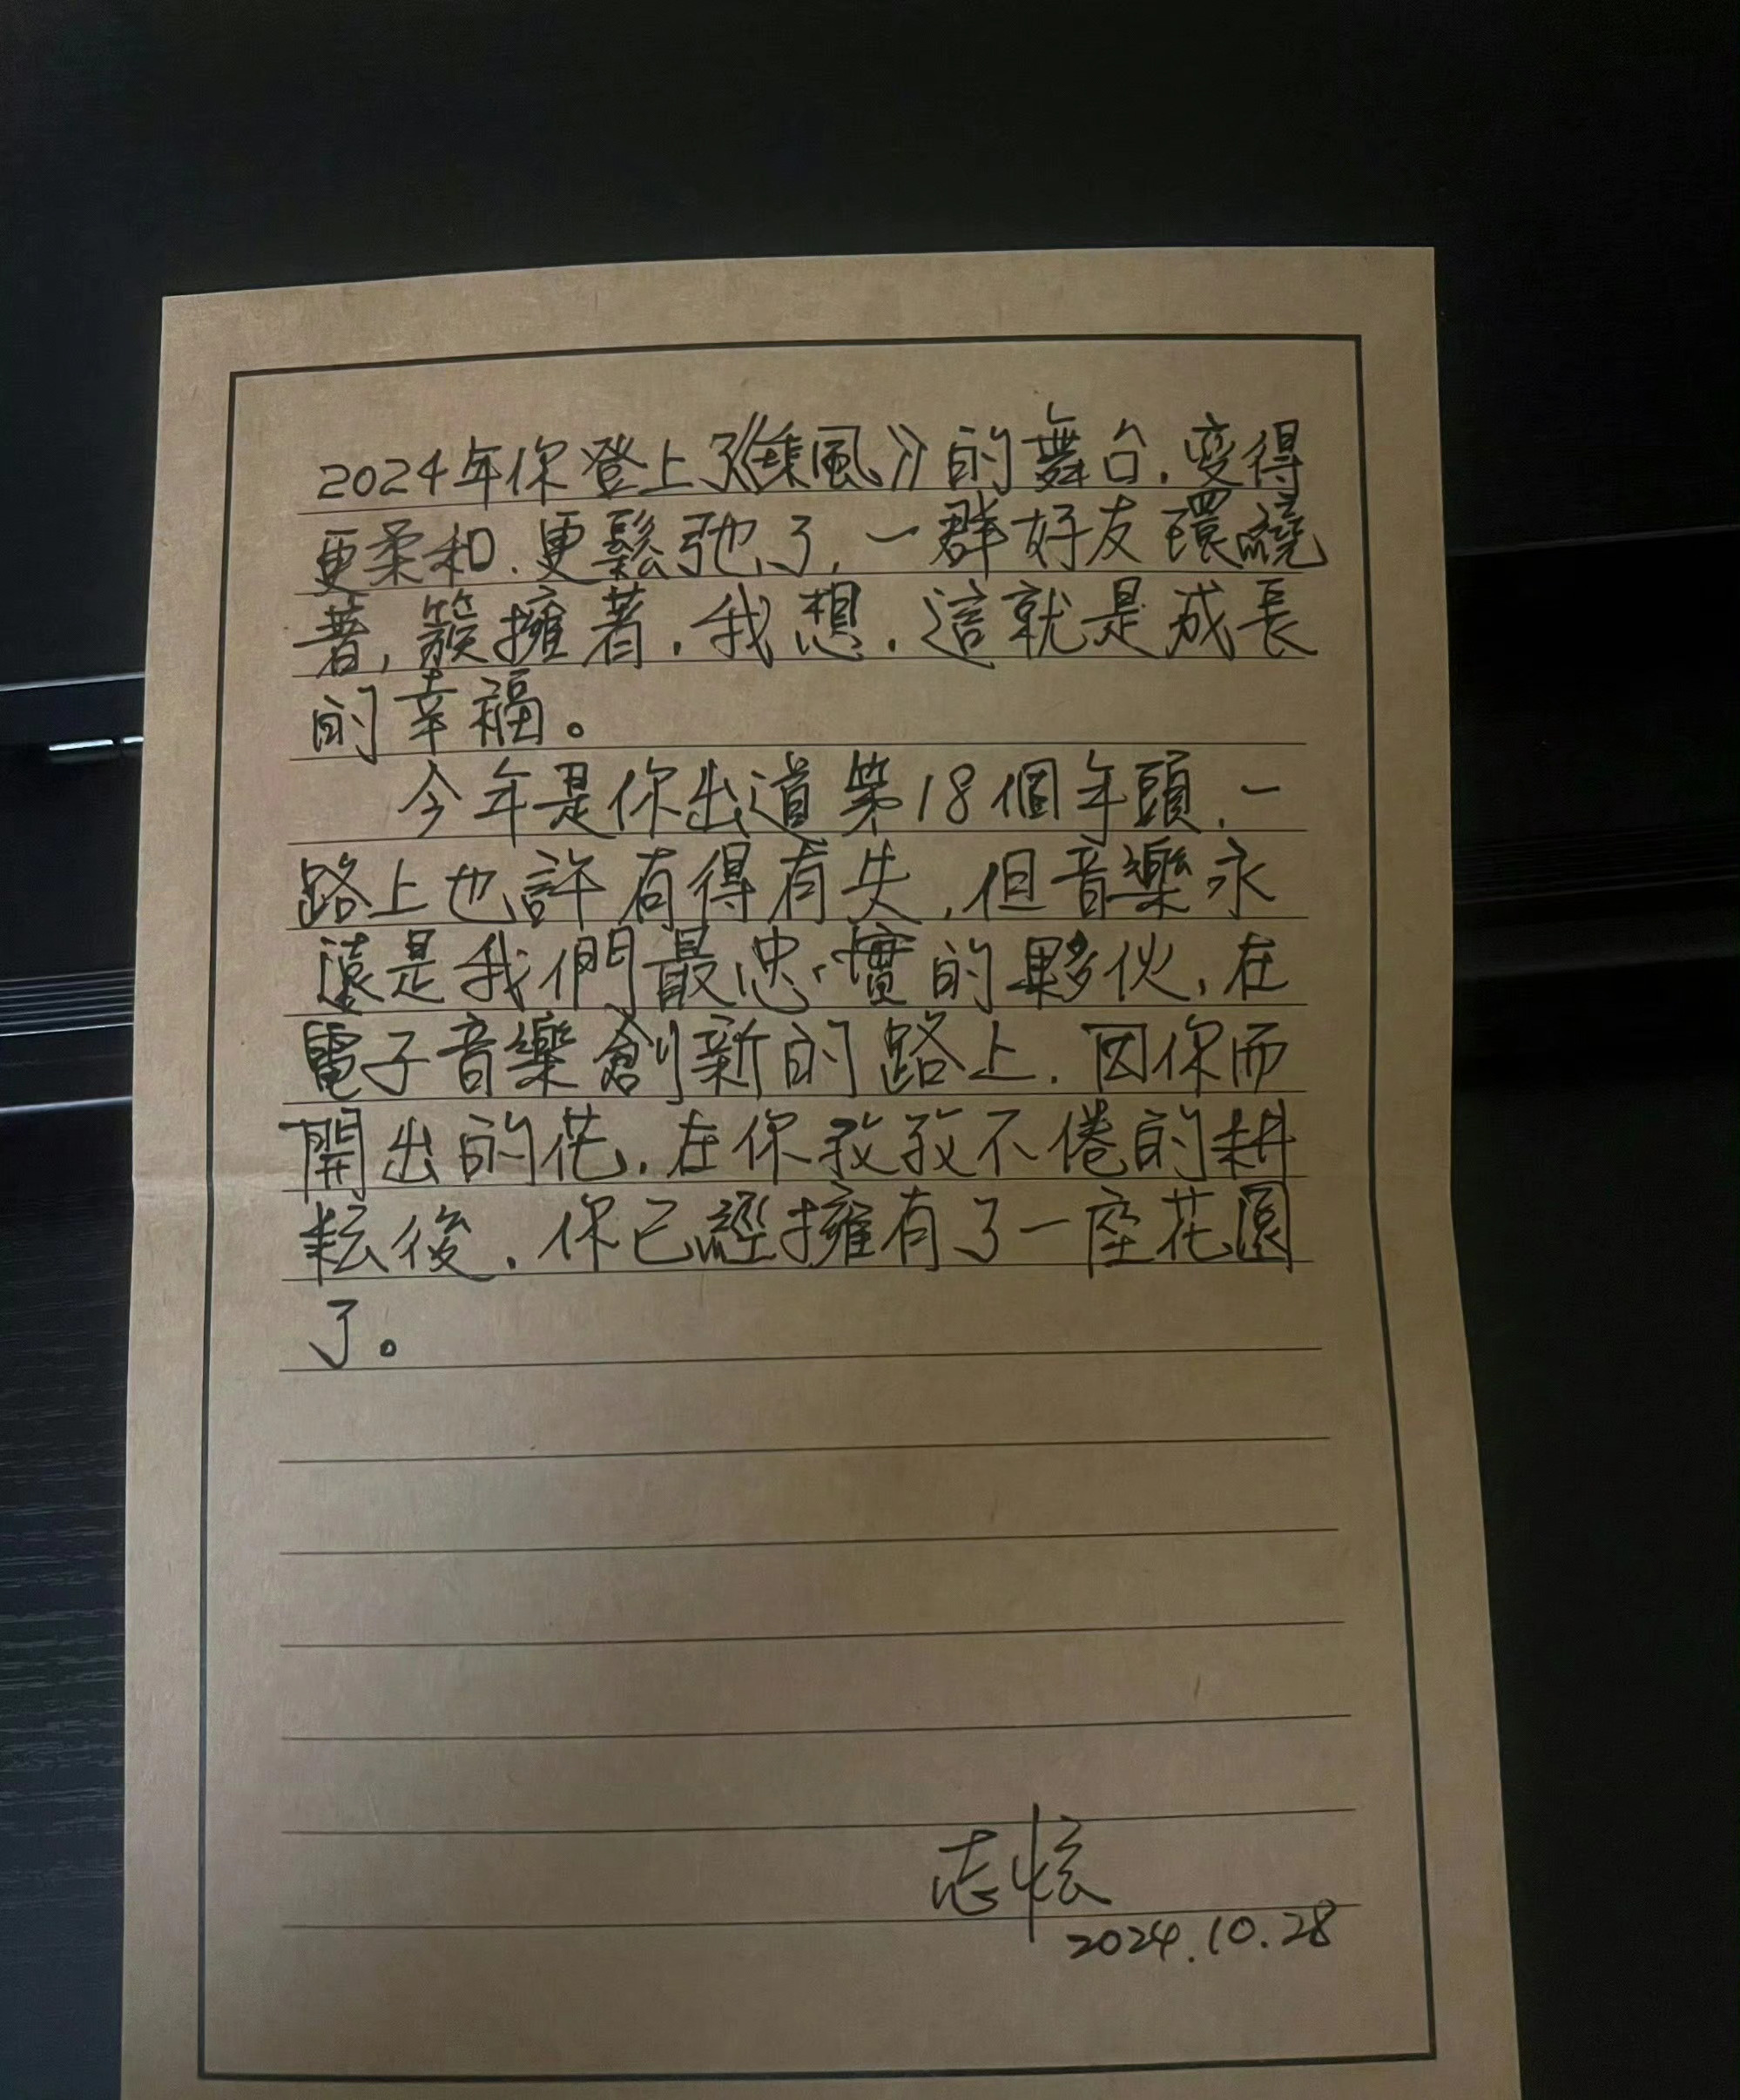 2024年你登上了《乘風》的舞台,變得
更柔和,更鬆弛了,一群好友環繞
著,簇擁著,我想,這就是成長
的幸福。
今年是你出道第18個年頭,一
路上也許有得有失,但音樂永
遠是我們最忠實的夥伙,在
電子音樂創新的路上,因你而
開出的花,在你孜孜不倦的耕
耘後,你已經擁有了一座花園
了。
志炫
2024.10.28